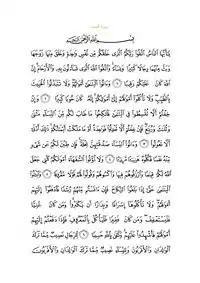 بِسْمِ اللَّهِ الرَّحْمَٰنِ الرَّحِيمِ
يَا أَيُّهَا النَّاسُ اتَّقُوا رَبَّكُمُ الَّذِي خَلَقَكُم مِّن نَّفْسٍ وَاحِدَةٍ وَخَلَقَ مِنْهَا زَوْجَهَا
وَبَثَّ مِنْهُمَا رِجَالًا كَثِيرًا وَنِسَاءً وَاتَّقُوا اللَّهَ الَّذِي تَسَاءَلُونَ بِهِ وَالْأَرْحَامَ إِنَّ
اللَّهَ كَانَ عَلَيْكُمْ رَقِيبًا ١ وَآتُوا الْيَتَامَىٰ أَمْوَالَهُمْ وَلَا تَتَبَدَّلُوا الْخَبِيثَ
بِالطَّيِّبِ وَلَا تَأْكُلُوا أَمْوَالَهُمْ إِلَىٰ أَمْوَالِكُمْ إِنَّهُ كَانَ حُوبًا كَبِيرًا ٢ وَإِنْ
خِفْتُمْ أَلَّا تُقْسِطُوا فِي الْيَتَامَىٰ فَانكِحُوا مَا طَابَ لَكُم مِّنَ النِّسَاءِ مَثْنَىٰ
وَثُلَاثَ وَرُبَاعَ فَإِنْ خِفْتُمْ أَلَّا تَعْدِلُوا فَوَاحِدَةً أَوْ مَا مَلَكَتْ أَيْمَانُكُمْ ذَٰلِكَ أَدْنَىٰ
أَلَّا تَعُولُوا ٣ وَآتُوا النِّسَاءَ صَدُقَاتِهِنَّ نِحْلَةً فَإِن طِبْنَ لَكُمْ عَن شَيْءٍ
مِّنْهُ نَفْسًا فَكُلُوهُ هَنِيئًا مَّرِيئًا ٤ وَلَا تُؤْتُوا السُّفَهَاءَ أَمْوَالَكُمُ الَّتِي جَعَلَ
اللَّهُ لَكُمْ قِيَامًا وَارْزُقُوهُمْ فِيهَا وَاكْسُوهُمْ وَقُولُوا لَهُمْ قَوْلًا مَّعْرُوفًا ٥ وَابْتَلُوا
الْيَتَامَىٰ حَتَّىٰ إِذَا بَلَغُوا النِّكَاحَ فَإِنْ آنَسْتُم مِّنْهُمْ رُشْدًا فَادْفَعُوا إِلَيْهِمْ
أَمْوَالَهُمْ وَلَا تَأْكُلُوهَا إِسْرَافًا وَبِدَارًا أَن يَكْبَرُوا وَمَن كَانَ غَنِيًّا
فَلْيَسْتَعْفِفْ وَمَن كَانَ فَقِيرًا فَلْيَأْكُلْ بِالْمَعْرُوفِ فَإِذَا دَفَعْتُمْ إِلَيْهِمْ
أَمْوَالَهُمْ فَأَشْهِدُوا عَلَيْهِمْ وَكَفَىٰ بِاللَّهِ حَسِيبًا ٦ لِّلرِّجَالِ نَصِيبٌ مِّمَّا تَرَكَ
الْوَالِدَانِ وَالْأَقْرَبُونَ وَلِلنِّسَاءِ نَصِيبٌ مِّمَّا تَرَكَ الْوَالِدَانِ وَالْأَقْرَبُونَ